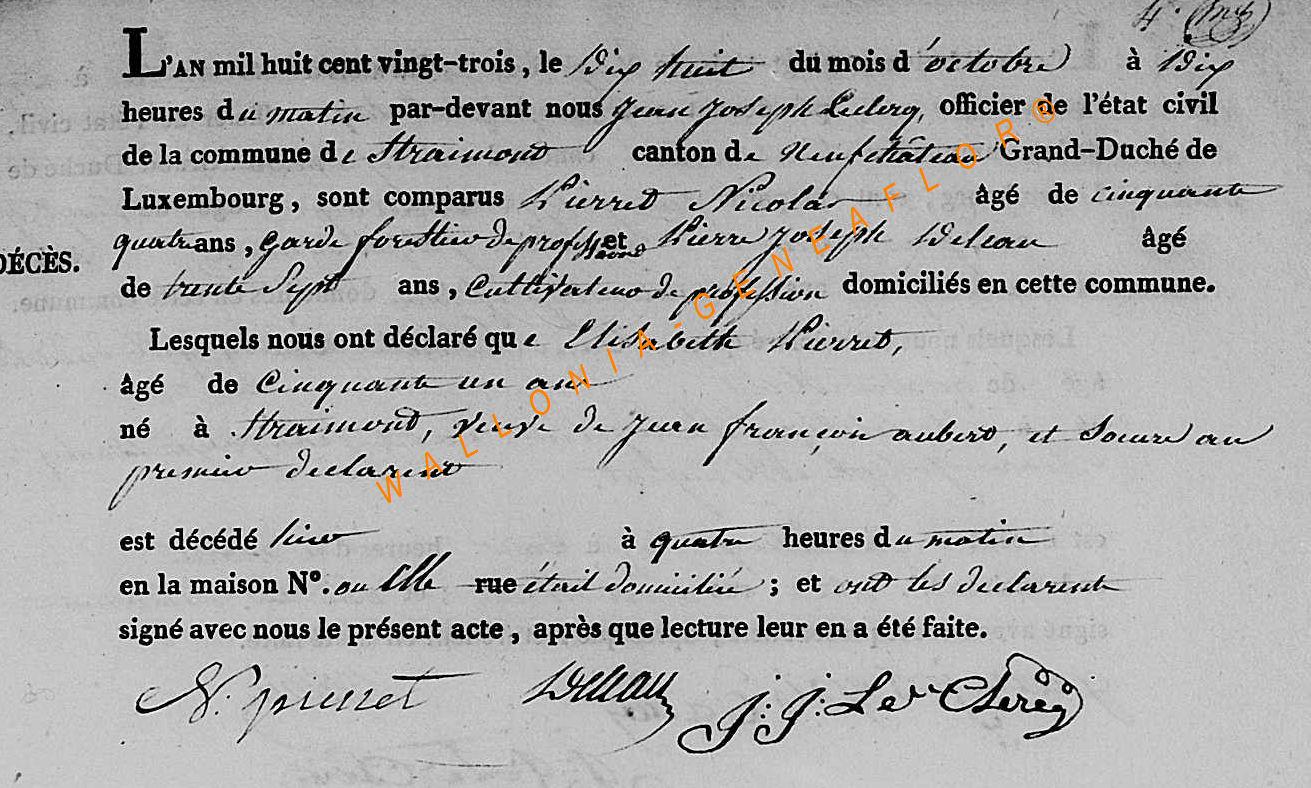 4.
L'AN mil huit cent vingt-trois, le Dix huit du mois d'octobre à Dix
heures du matin par-devant nous Jean Joseph Leclerq, officier de l'état civil
de la commune de Straimont canton de Neufchâteau Grand-Duché de
Luxembourg, sont comparus Pierret Nicolas âgé de cinquante
quatre ans, Garde forestier de profession et Pierre Joseph Deleau âgé
DÉCÈS.
de trente Sept ans, Cultivateur de profession domiciliés en cette commune.
Lesquels nous ont déclaré que Elisabeth Pierret,
âgé de Cinquante un ans
né à Straimont, veuve de Jean françois aubert, et Soeure au
premier declarent
est décédé hier à quatre heures du matin
en la maison N°. ou Elle rue était domiciliée ; et ont les declarent
signé avec nous le présent acte, après que lecture leur en a été faite.
N. pierret Deleau J: J: Le Clerq
WALLONIA-GENEAFLOR®